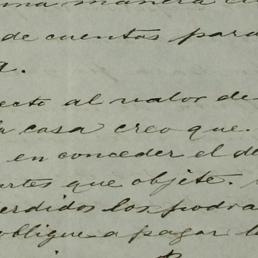 ma manera
de cuentas para
a.
ecto al valor de
la casa creo que.
en conceder el de
artes que objete.
perdidos los podra
oblique a pagar l